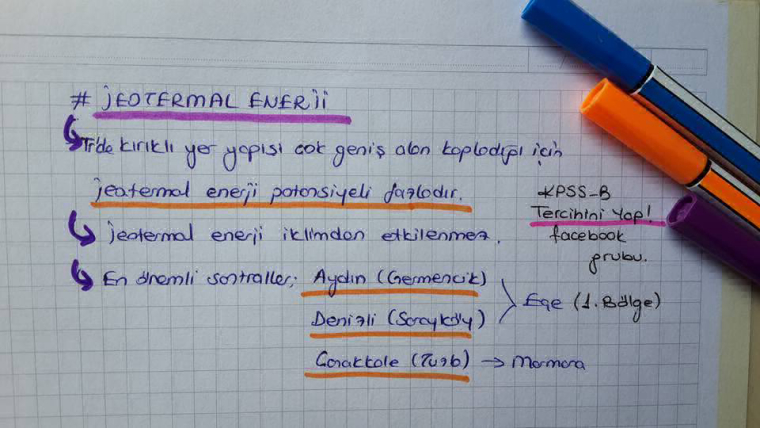 # JEOTERMAL ENERJİ
Tr'de kırıklı yer yapısı çok geniş alan kapladığı için
jeotermal enerji potansiyeli fazladır.
jeotermal enerji iklimden etkilenmez.
En önemli santraller; Aydın (Germencik)
Denizli (Sarayköy)
Ege (1. Bölge)
Çanakkale (Tuzla) → Marmara
KPSS-B
Tercihini Yap!
facebook
grubu.